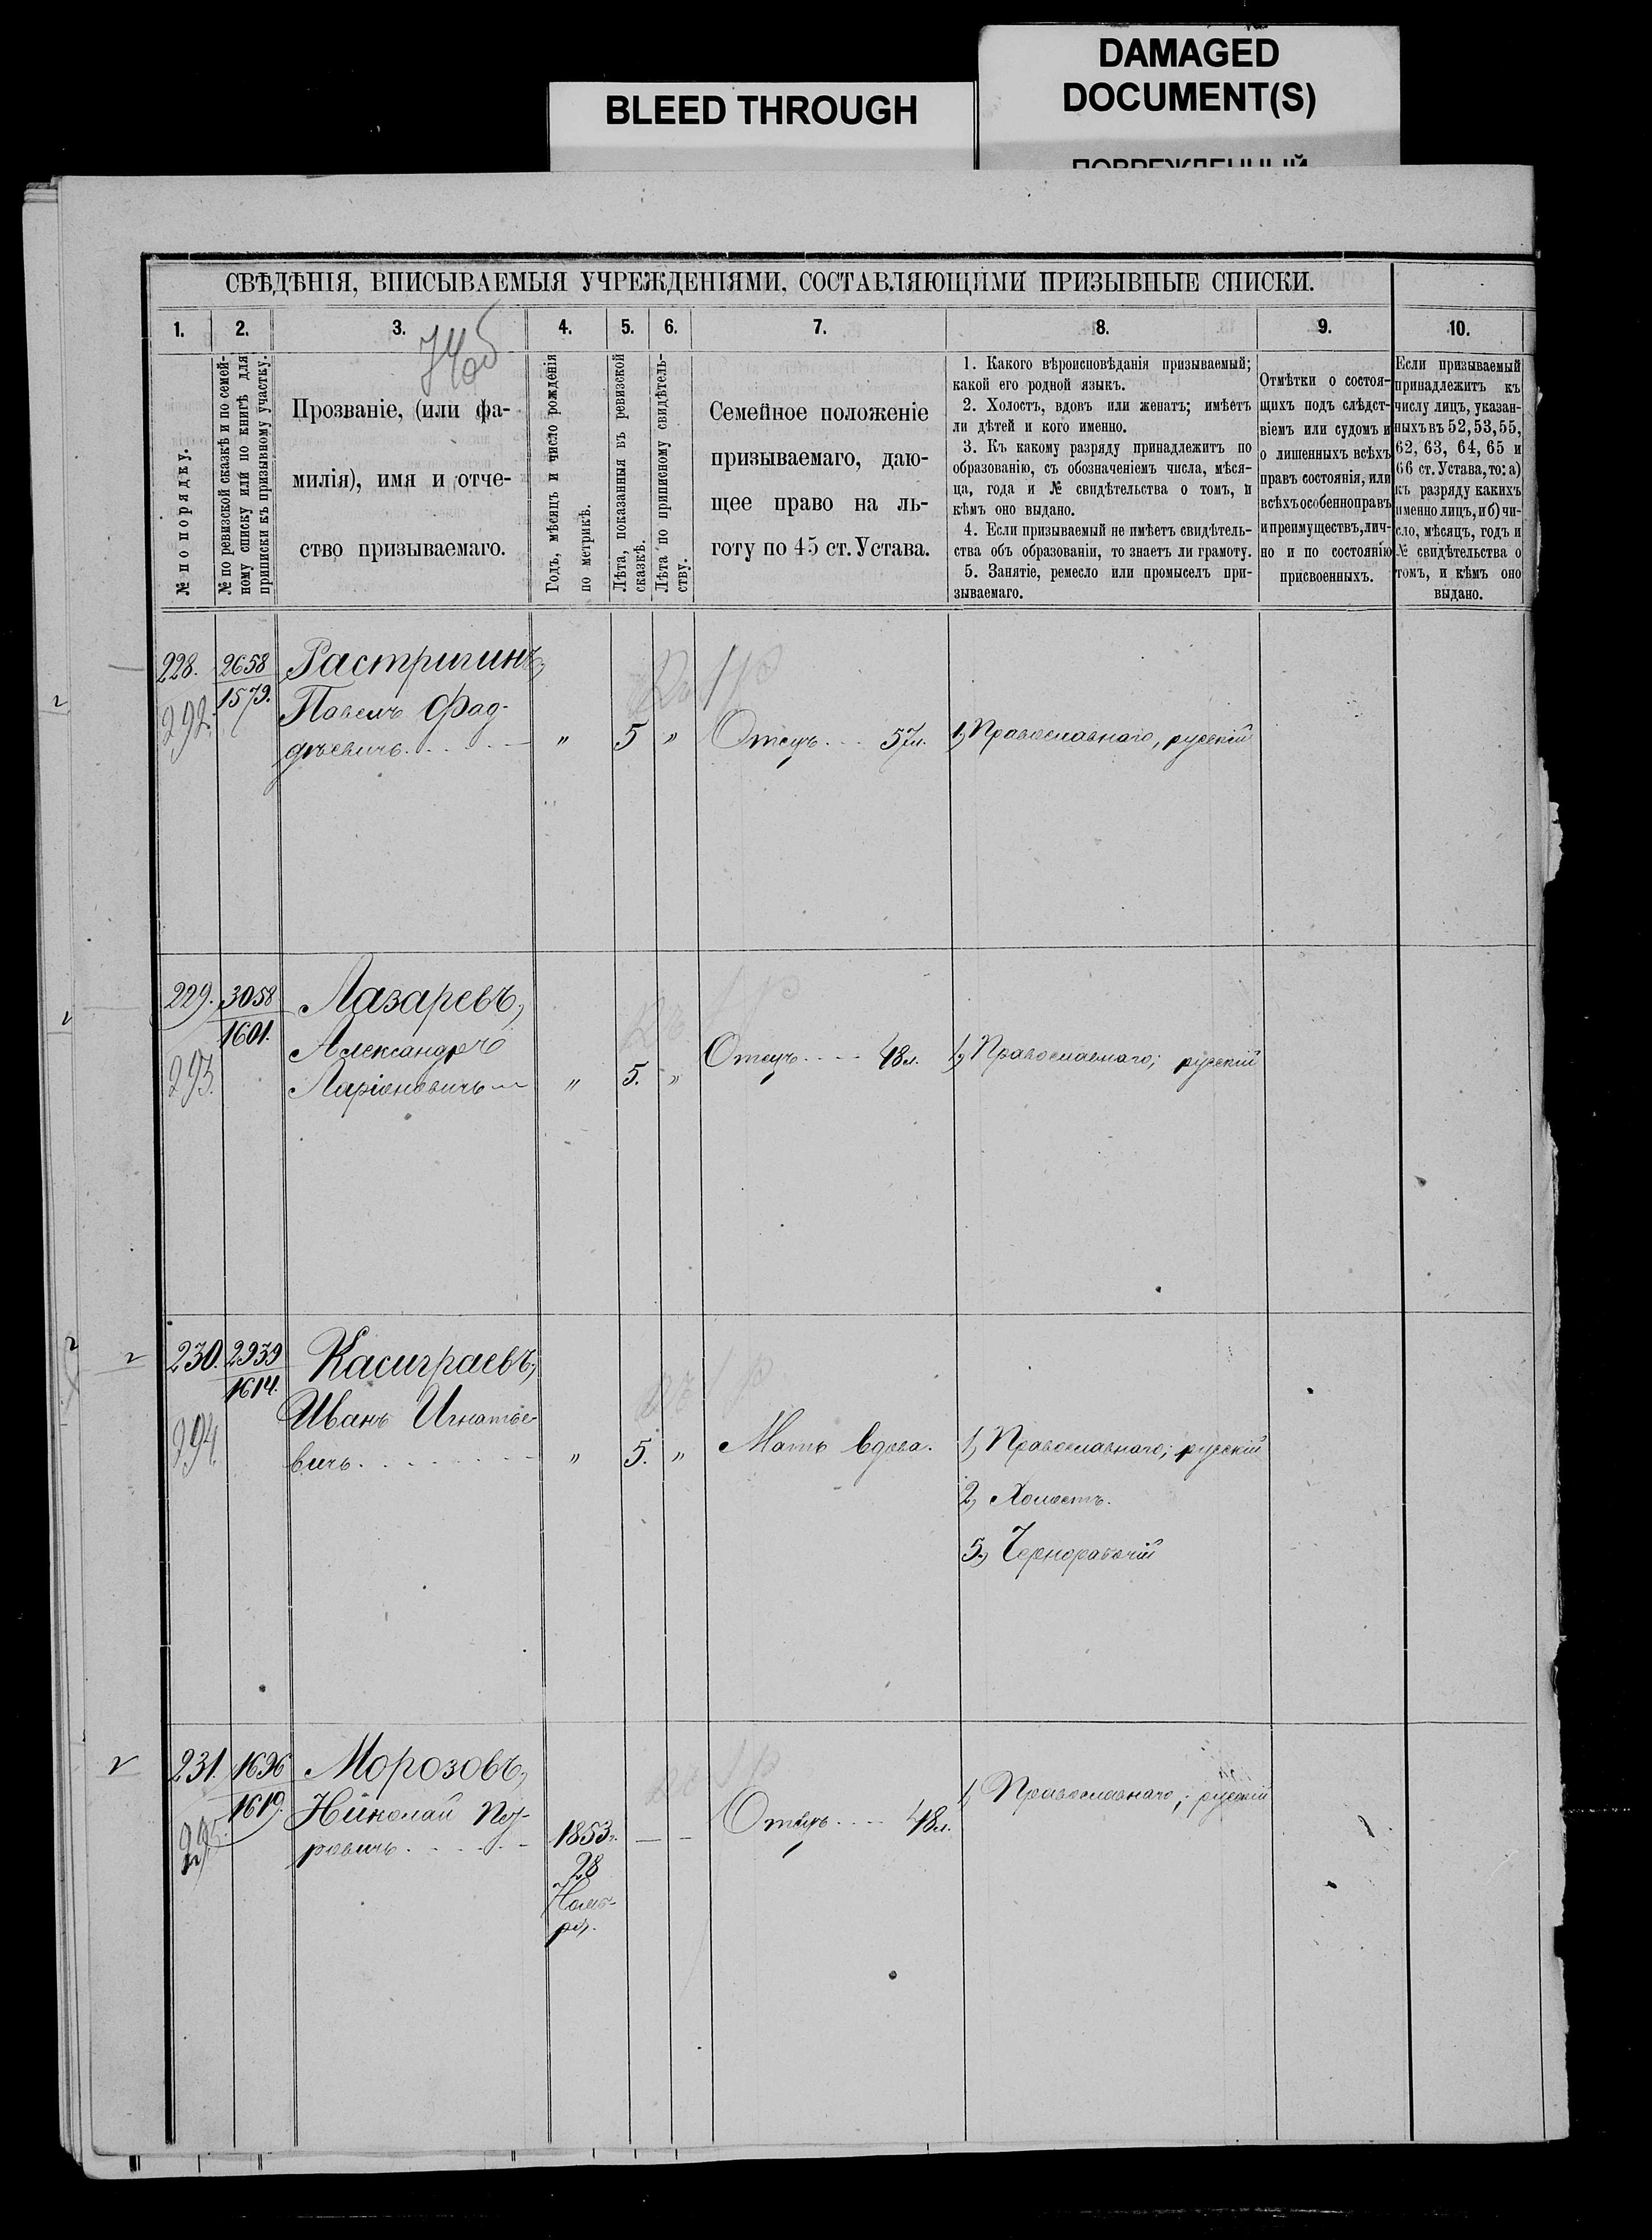 BLEED THROUGH
DAMAGED
DOCUMENT(S)
ПОВРЕЖДЕННЫЙ
СВѢДѢНІЯ, ВПИСЫВАЕМЫЯ УЧРЕЖДЕНІЯМИ, СОСТАВЛЯЮЩИМИ ПРИЗЫВНЫЕ СПИСКИ.
1.
2.
3.
4.
5.
6.
7.
8.
9.
10.
№ по порядку.
№ по ревизской сказкѣ и по семей-
ному списку или по книгѣ для
приписки къ призывному участку.
Прозваніе, (или фа-
милія), имя и отче-
ство призываемаго.
Годъ, мѣсяцъ и число рожденія
по метрикѣ.
Лѣта, показанныя въ ревизской
сказкѣ.
Лѣта по приписному свидѣтель-
ству.
Семейное положеніе
призываемаго, даю-
щее право на ль-
готу по 45 ст. Устава.
1. Какого вѣроисповѣданія призываемый;
какой его родной языкъ.
2. Холостъ, вдовъ или женатъ; имѣетъ
ли дѣтей и кого именно.
3. Къ какому разряду принадлежитъ по
образованію, съ обозначеніемъ числа, мѣся-
ца, года и № свидѣтельства о томъ, и
кѣмъ оно выдано.
4. Если призываемый не имѣетъ свидѣтель-
ства объ образованіи, то знаетъ ли грамоту.
5. Занятіе, ремесло или промыселъ при-
зываемаго.
Отмѣтки о состоя-
щихъ подъ слѣдст-
віемъ или судомъ и
о лишенныхъ всѣхъ
правъ состоянія, или
всѣхъ особенно правъ
и преимуществъ, лич-
но и по состоянію
присвоенныхъ.
Если призываемый
принадлежитъ къ
числу лицъ, указан-
ныхъ въ 52, 53, 55,
62, 63, 64, 65 и
66 ст. Устава, то: а)
къ разряду какихъ
именно лицъ, и б) чи-
сло, мѣсяцъ, годъ и
№ свидѣтельства о
томъ, и кѣмъ оно
выдано.
228. 2658 Растригинъ,
292. 1579. Павелъ Фад-
дѣевичъ. " 5 " Отецъ 57 л. 1, Православнаго, русскій
229. 3058 Лазаревъ,
1601. Александръ
293. Ларіоновичъ " 5. " Отецъ 48 л. 1, Православнаго; русскій
230. 2939 Касиграевъ,
1614. Иванъ Игнатье-
294 вичъ. " 5. " Мать вдова. 1, Православнаго; русскій
2, Холостъ.
5, Чернорабочій
231. 1696 Морозовъ,
1619. Николай Пет-
295. ровичъ. 1853 г. — — Отецъ 48 л. 1, Православнаго; русскій
28
Нояб-
ря.